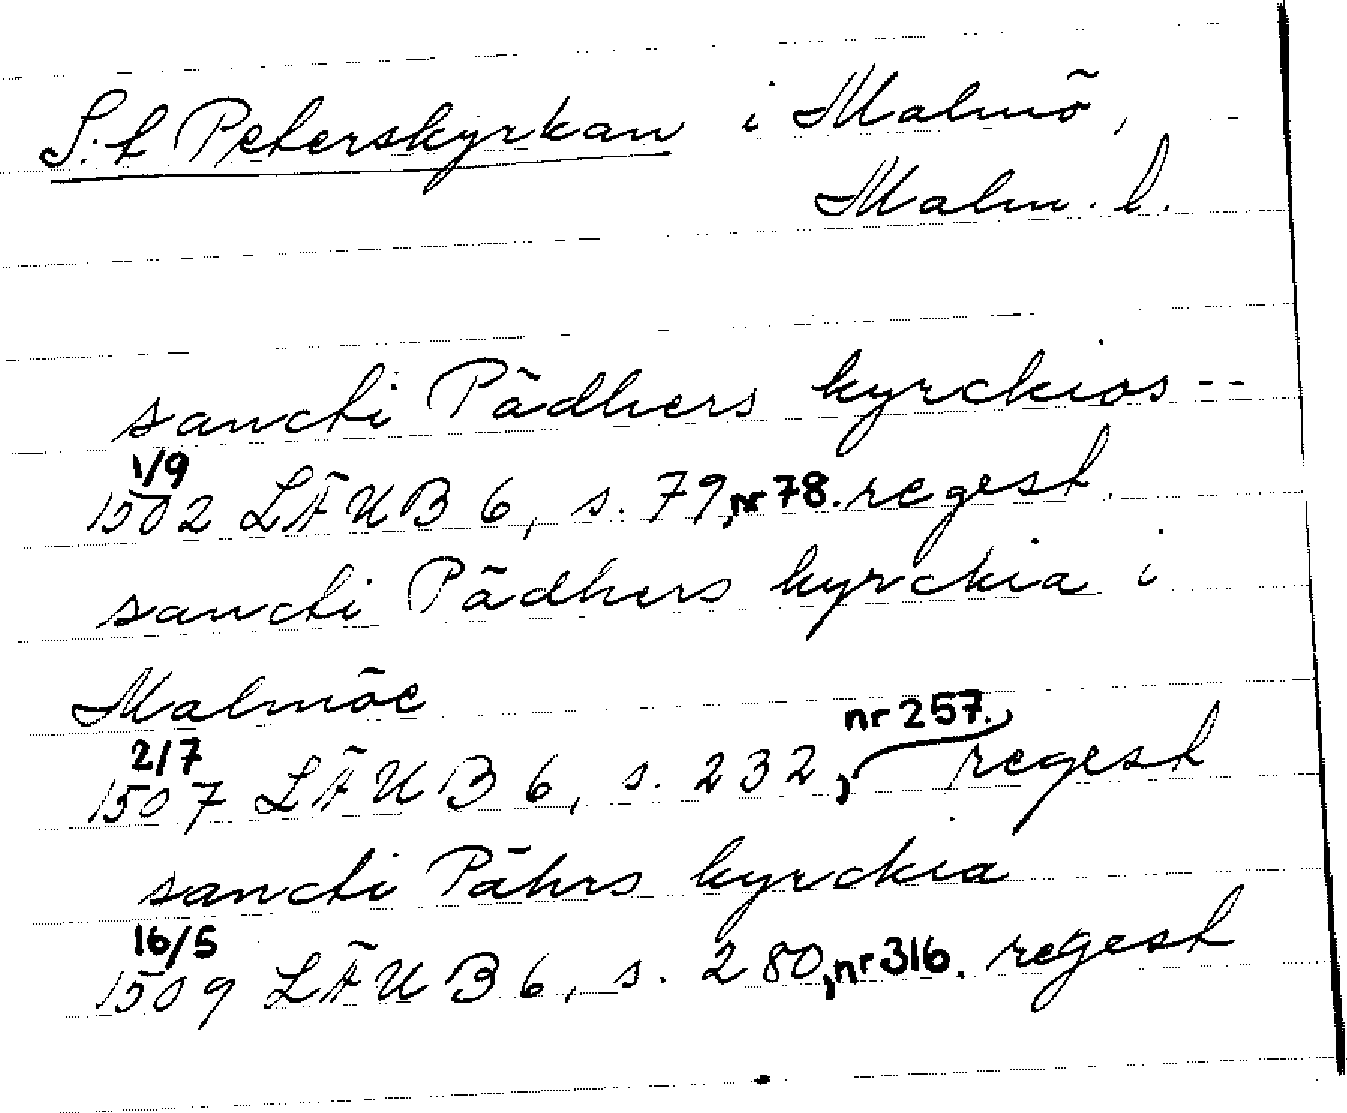 S:t Peterskyrkan i Malmö,
Malm. l.
sancti Pädhers kyrckios--
1/9
1502 LÄUB 6, s. 79, nr 78. regest.
sancti Pädhers kyrckia i
Malmöe
2/7
1507 LÄUB 6, s. 232, nr 257. regest
sancti Pährs kyrckia
16/5
1509 LÄUB 6, s. 280, nr 316. regest